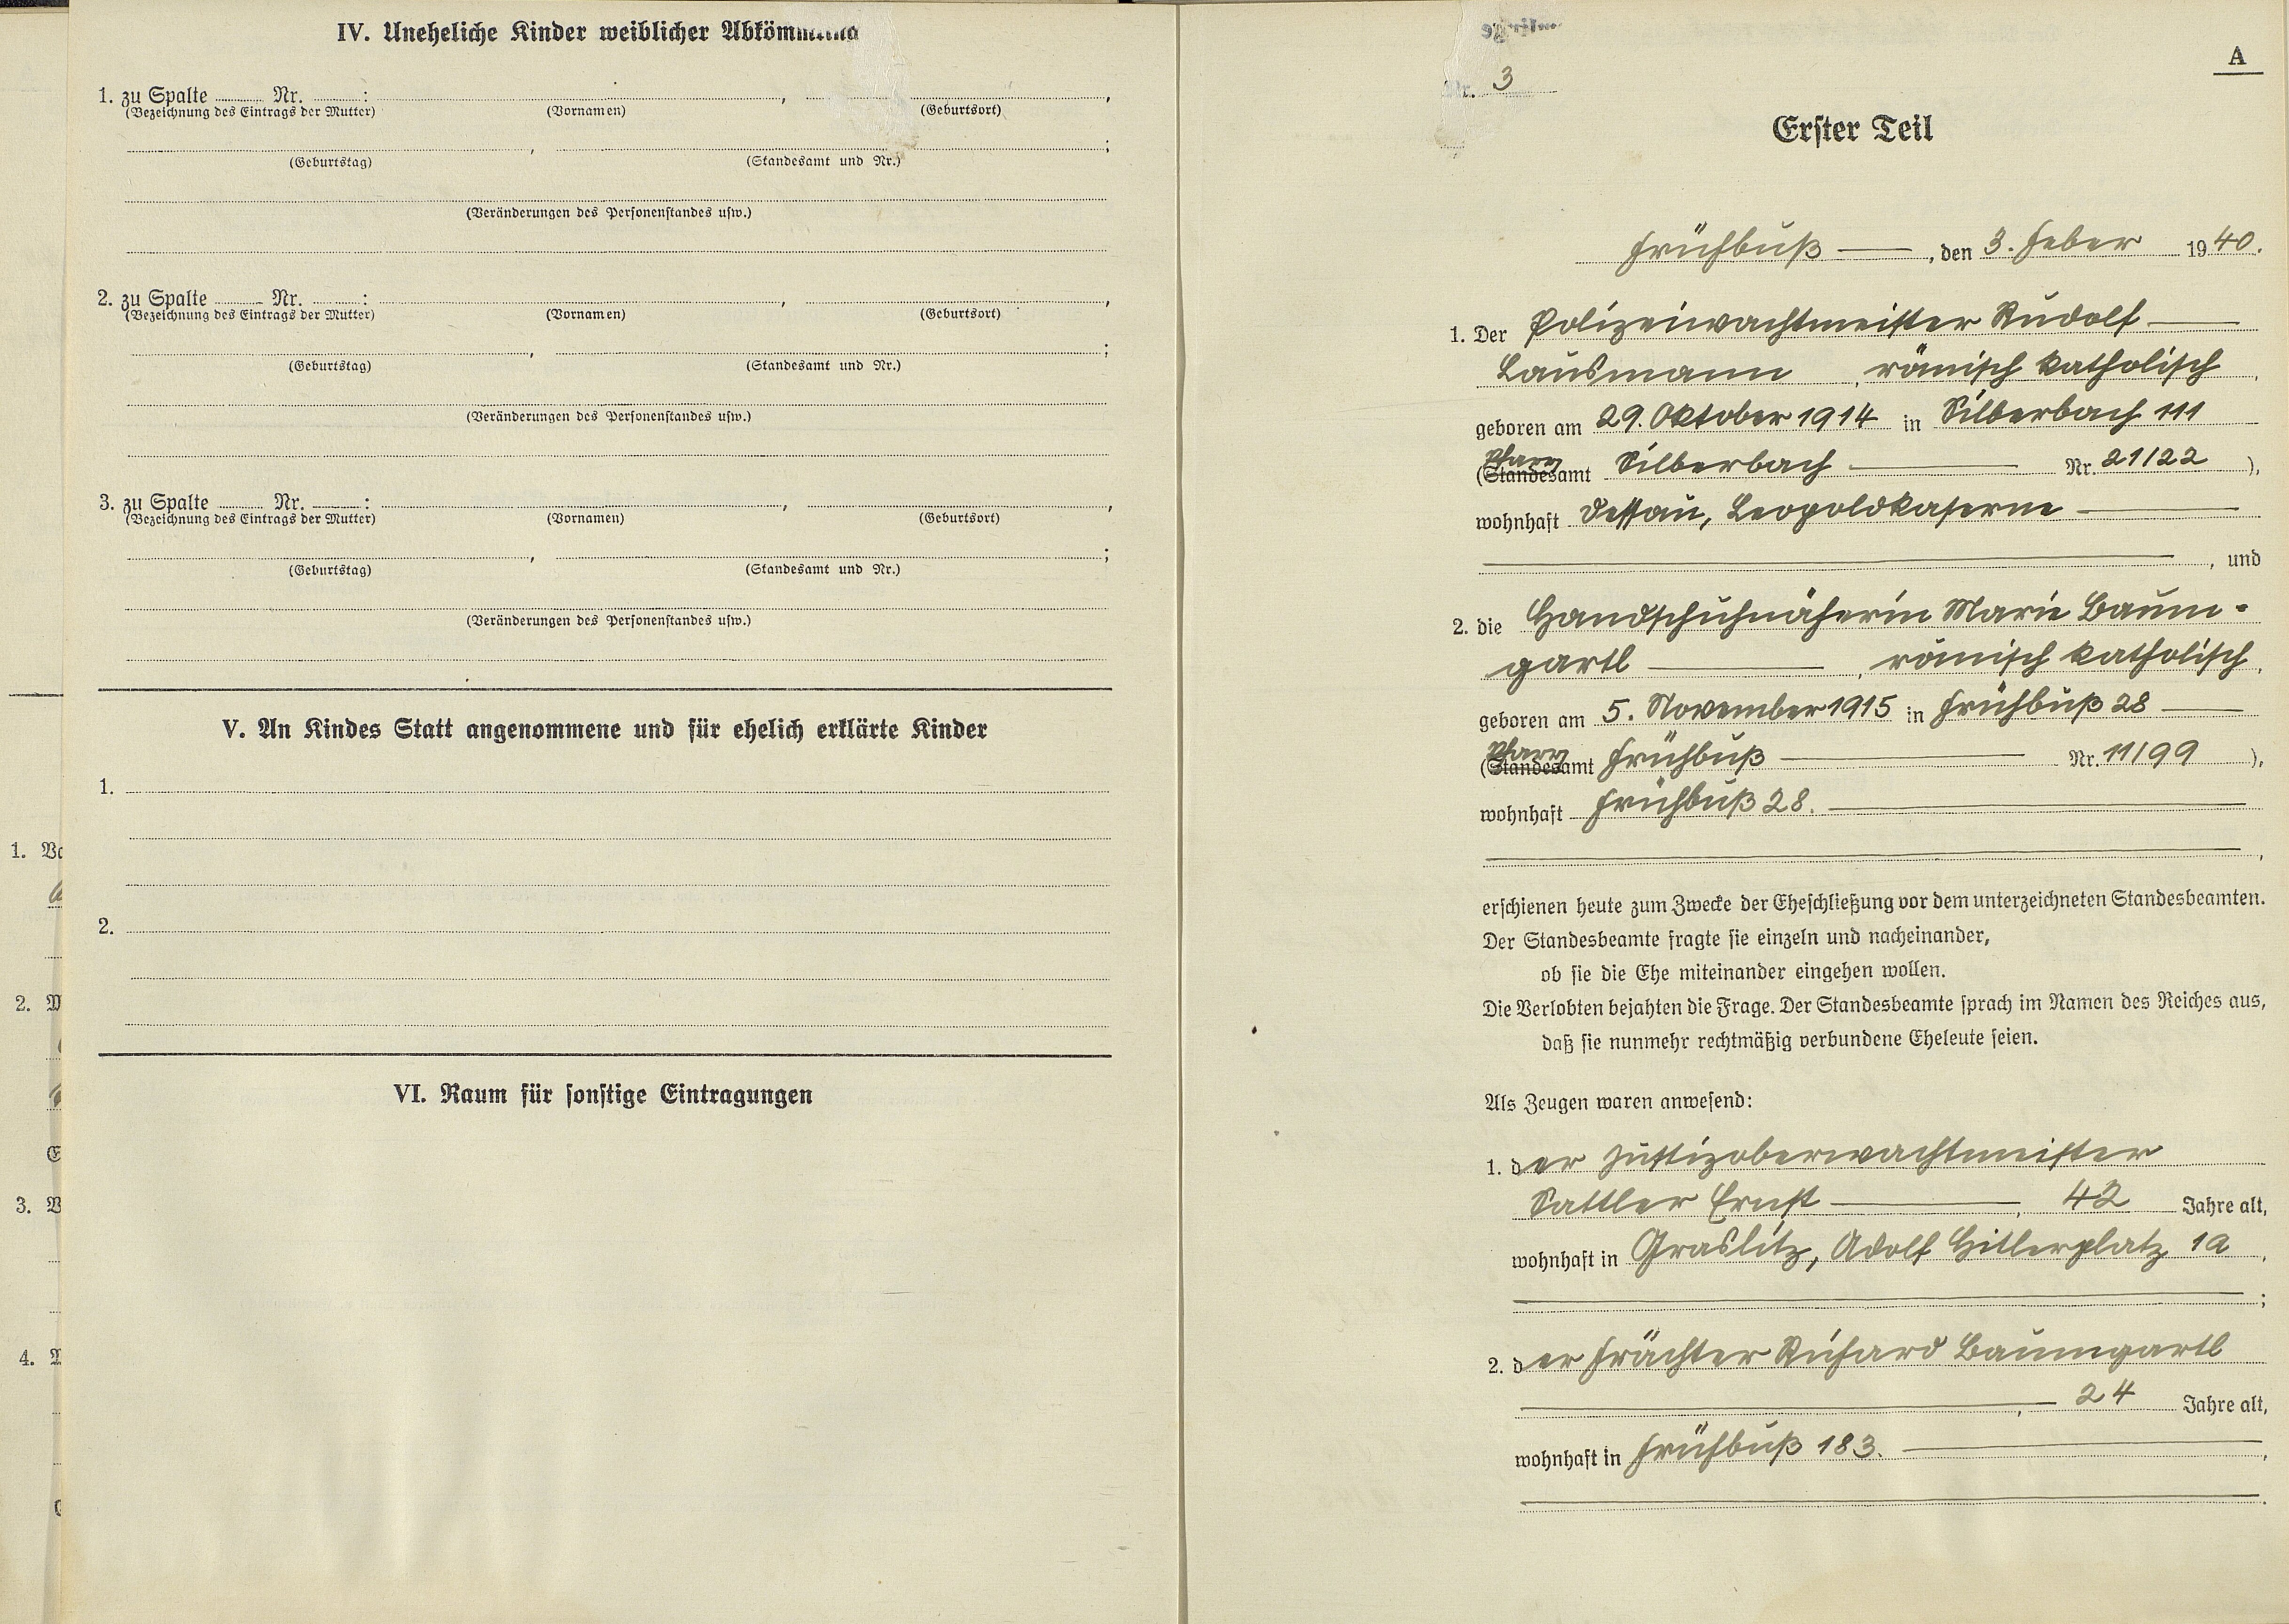 IV. Uneheliche Kinder weiblicher
1. zu Spalte ........ Nr. ........ :
(Bezeichnung des Eintrags der Mutter) (Vornamen) (Geburtsort)
(Geburtstag) (Standesamt und Nr.)
(Veränderungen des Personenstandes usw.)
2. zu Spalte ........ Nr. ........ :
(Bezeichnung des Eintrags der Mutter) (Vornamen) (Geburtsort)
(Geburtstag) (Standesamt und Nr.)
(Veränderungen des Personenstandes usw.)
3. zu Spalte ........ Nr. ........ :
(Bezeichnung des Eintrags der Mutter) (Vornamen) (Geburtsort)
(Geburtstag) (Standesamt und Nr.)
(Veränderungen des Personenstandes usw.)
V. An Kindes Statt angenommene und für ehelich erklärte Kinder
1.
2.
VI. Raum für sonstige Eintragungen
A
Nr. 3
Erster Teil
Frühbuß, den 3. Feber 1940.
1. Der Polizeiwachtmeister Rudolf
Lausmann, römisch katholisch,
geboren am 29. Oktober 1914 in Silberbach 111
Pfarr
(Standesamt Silberbach Nr. 21/22),
wohnhaft Dessau, Leopoldkaserne
, und
2. die Handschuhnäherin Marie Baum-
gartl, römisch katholisch,
geboren am 5. November 1915 in Frühbuß 28
Pfarr
(Standesamt Frühbuß Nr. 11/99),
wohnhaft Frühbuß 28.
erschienen heute zum Zwecke der Eheschließung vor dem unterzeichneten Standesbeamten.
Der Standesbeamte fragte sie einzeln und nacheinander,
ob sie die Ehe miteinander eingehen wollen.
Die Verlobten bejahten die Frage. Der Standesbeamte sprach im Namen des Reiches aus,
daß sie nunmehr rechtmäßig verbundene Eheleute seien.
Als Zeugen waren anwesend:
1. der Justizoberwachtmeister
Sattler Ernst, 42 Jahre alt,
wohnhaft in Graslitz, Adolf Hitlerplatz 1a,
;
2. der Frächter Richard Baumgartl
, 24 Jahre alt,
wohnhaft in Frühbuß 183.